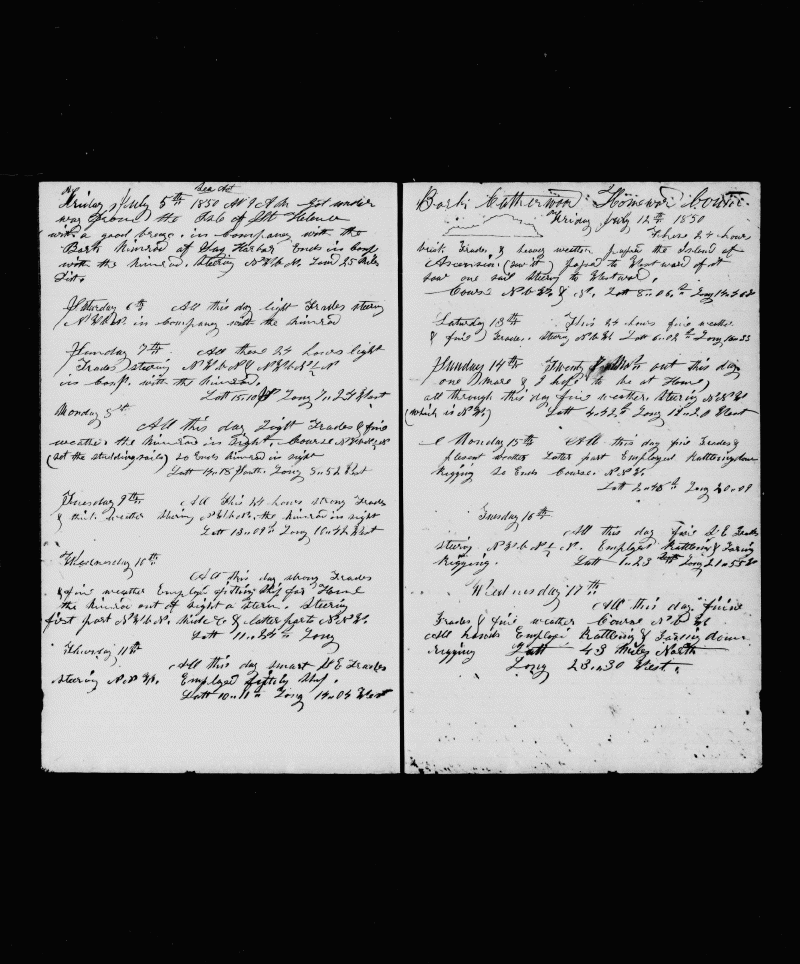 Sea Act
Friday July 5th 1850 At 9 AM Got under
way from the Isle of St Helena
with a good breeze in Company with the
Bark Nimrod of Sag Harbor Ends in Comp
with the Nimrod. Steering N W b W. Land 25 Miles
Dist.
Saturday 6th All this day light Trades steering
N W b W. in Company with the Nimrod
Sunday 7th All these 24 hours light
Trades steering N W b W &
in Comp. with the Nimrod.
Latt 15 10 Long 7 24 West
Monday 8th
All this day Light Trades & fine
weather the Nimrod in Sight. Course
(set the studding sails) So Ends Nimrod in sight
Latt 14 18 South. Long 8 52 West
Tuesday 9th All this 24 hours strong Trades
& thick weather Steering N W b W. the Nimrod in sight
Latt 13 09 Long 10 42 West
Wednesday 10th
All this day strong Trades
& fine weather Employe fitting Ship for Home
the Nimrod out of sight a Stern. Steering
first part N W b W. Middle & latter parts N N W.
Latt 11 34 Long
Thursday 11th
All this day smart S E Trades
Steering N W. Employed fitting Ship.
Latt 10 11 Long 14 04 West
Bark Catherwood Homeward Bound
Friday July 12th 1850
These 24 hours
brisk Trades, & heavy weather past the Island of
Ascension. past to Westward of it
saw one sail steering to Westward.
Course N b W. & N. Latt 8 06 Long
Saturday 13th This 24 hours fine weather
& fine Trades. Latt 6 02 Long 16 33
Sunday 14th Twenty out this day
one more & I hope to be at Home,
all through this day fine weather. Steering N N W
(which is N W) Latt 4 42 Long 18 20 West
Monday 15th All this day fine Trades &
plesent weather Latter part Employed Rattleing down
Rigging So Ends Course. N N W.
Latt 2 48 Long 20 09
Tuesday 16th
All this day fine S E Trades
steering N W b N ½ N. Employed Rattleing & Taring
Rigging. Latt 1 23 Long 21 55 W
Wednesday 17th
All this day fine
Trades & fine weather Course N b W
All hands Employe Rattleing & Taring down
rigging Latt 43 Miles North
Long 23 30 West.